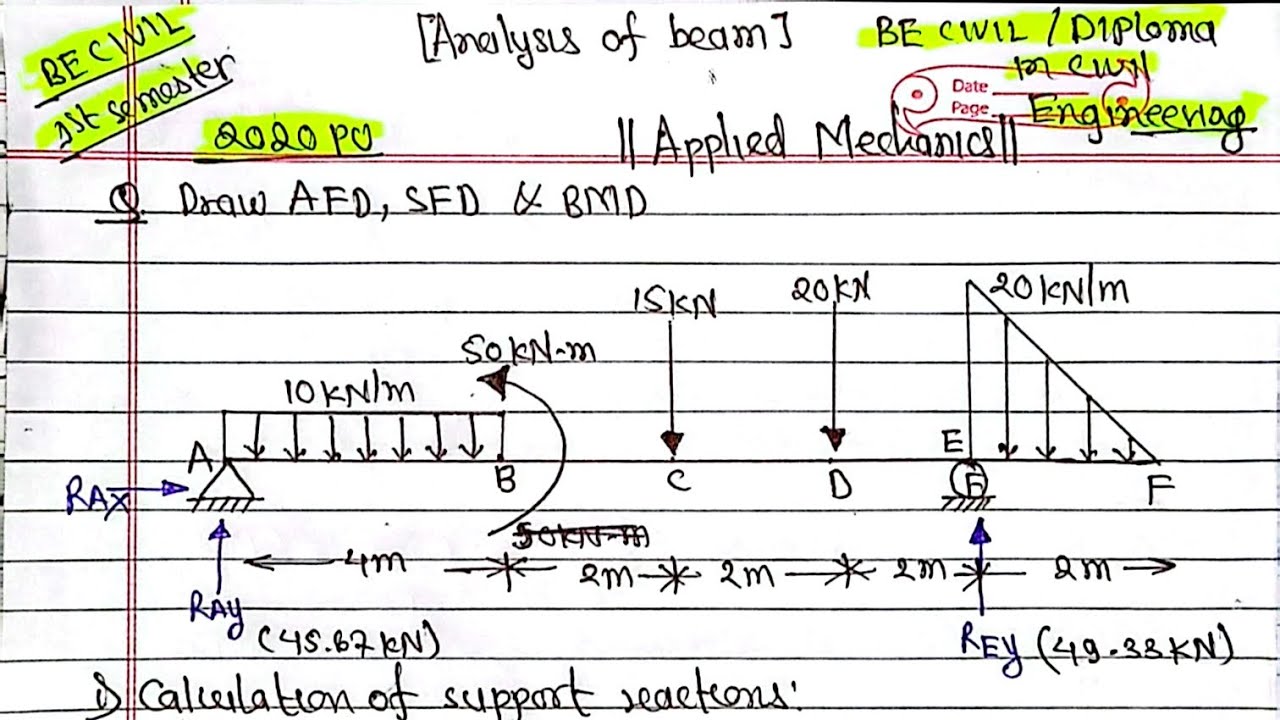 BE CIVIL
1st semester
[Analysis of beam]
BE CIVIL / Diploma
in civil
Engineering
Date
Page
2020 PU
|| Applied Mechanics ||
Q. Draw AFD, SFD & BMD
15KN
20KN
20KN/m
50KN-m
10KN/m
A
B
C
D
E
F
RAX
50KN-m
4m
2m
2m
2m
2m
RAY
(45.67KN)
REY (49.33KN)
i) Calculation of support reactions: